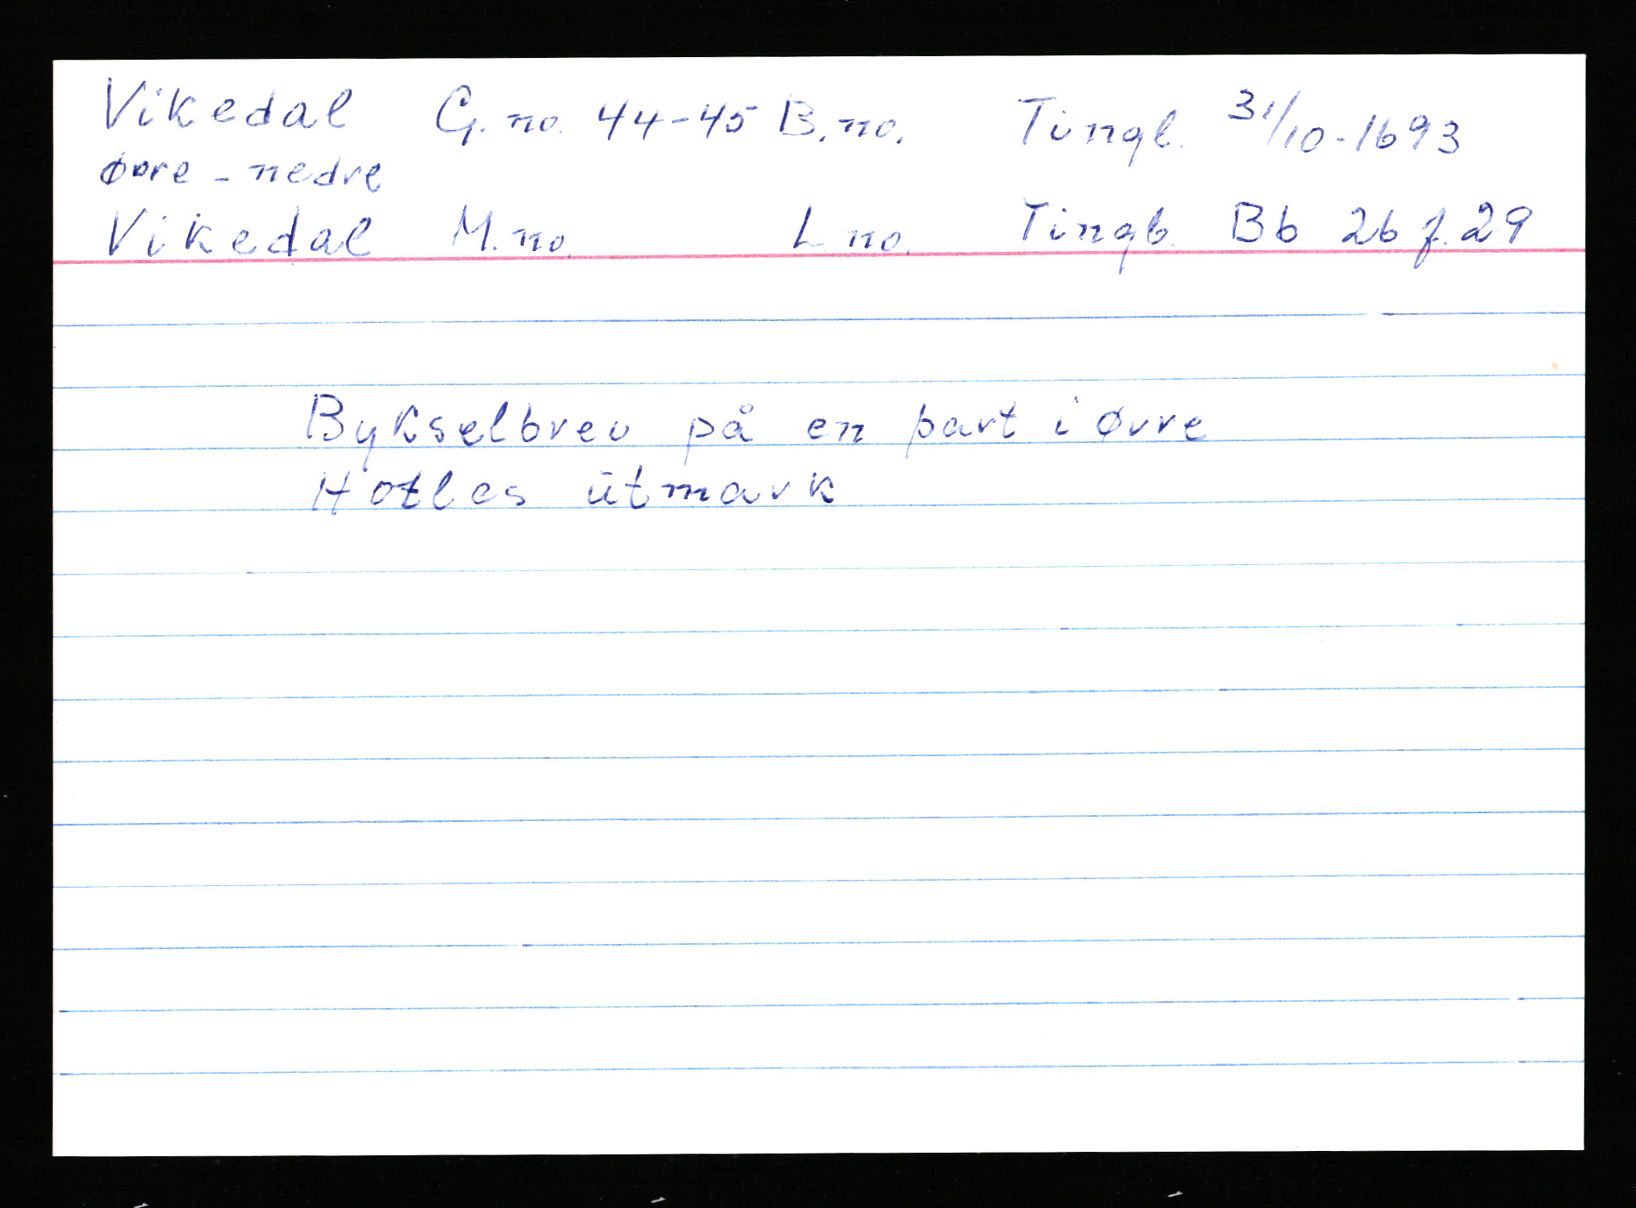 Vikedal G. no. 44-45 B. no. Tingl. 31/10-1693
øvre - nedre
Vikedal M. no. L no. Tingb. Bb 26 f. 29
Bykselbrev på en part i øvre
Hotles ūtmark